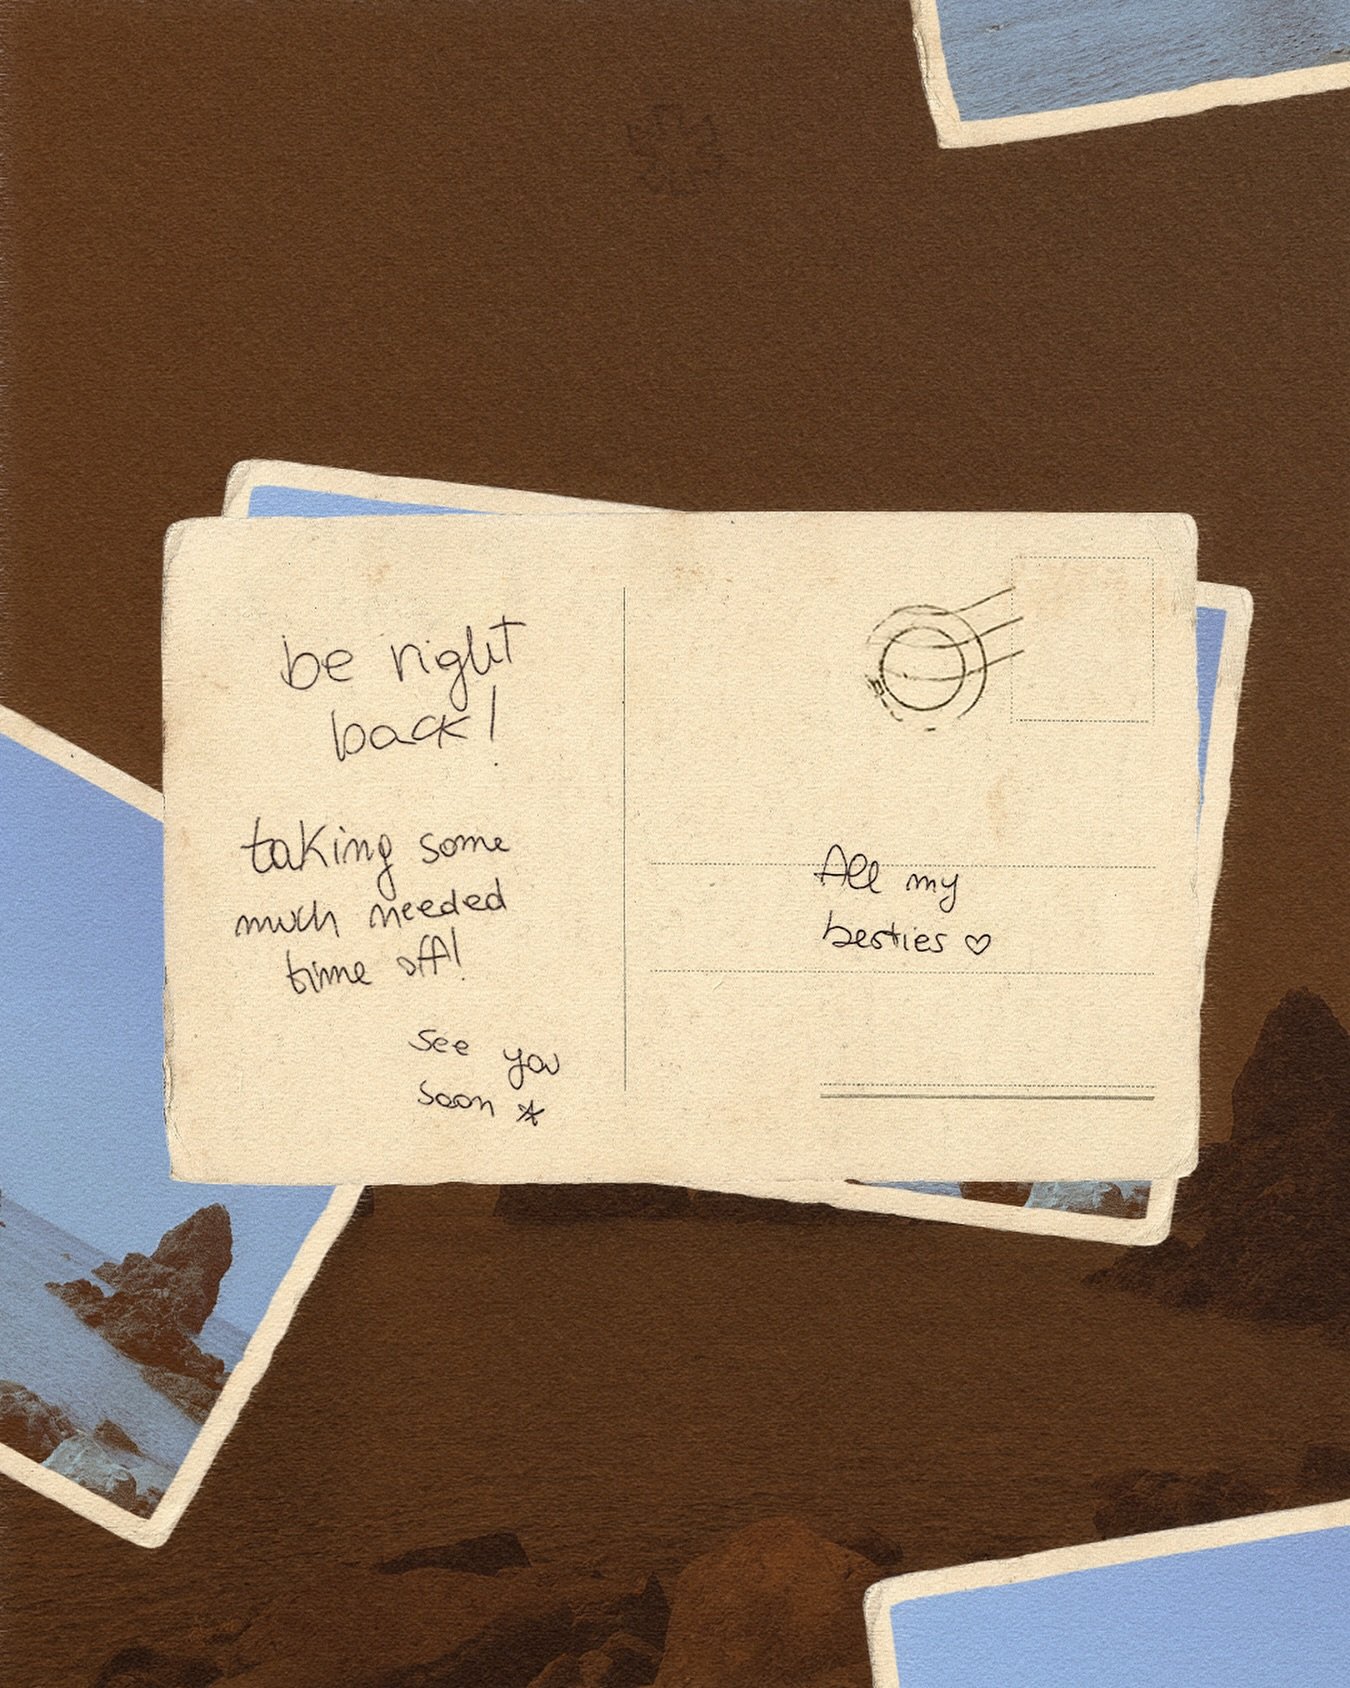 be right
back!
taking some
much needed
time off!
see you
soon *
All my
besties ♡